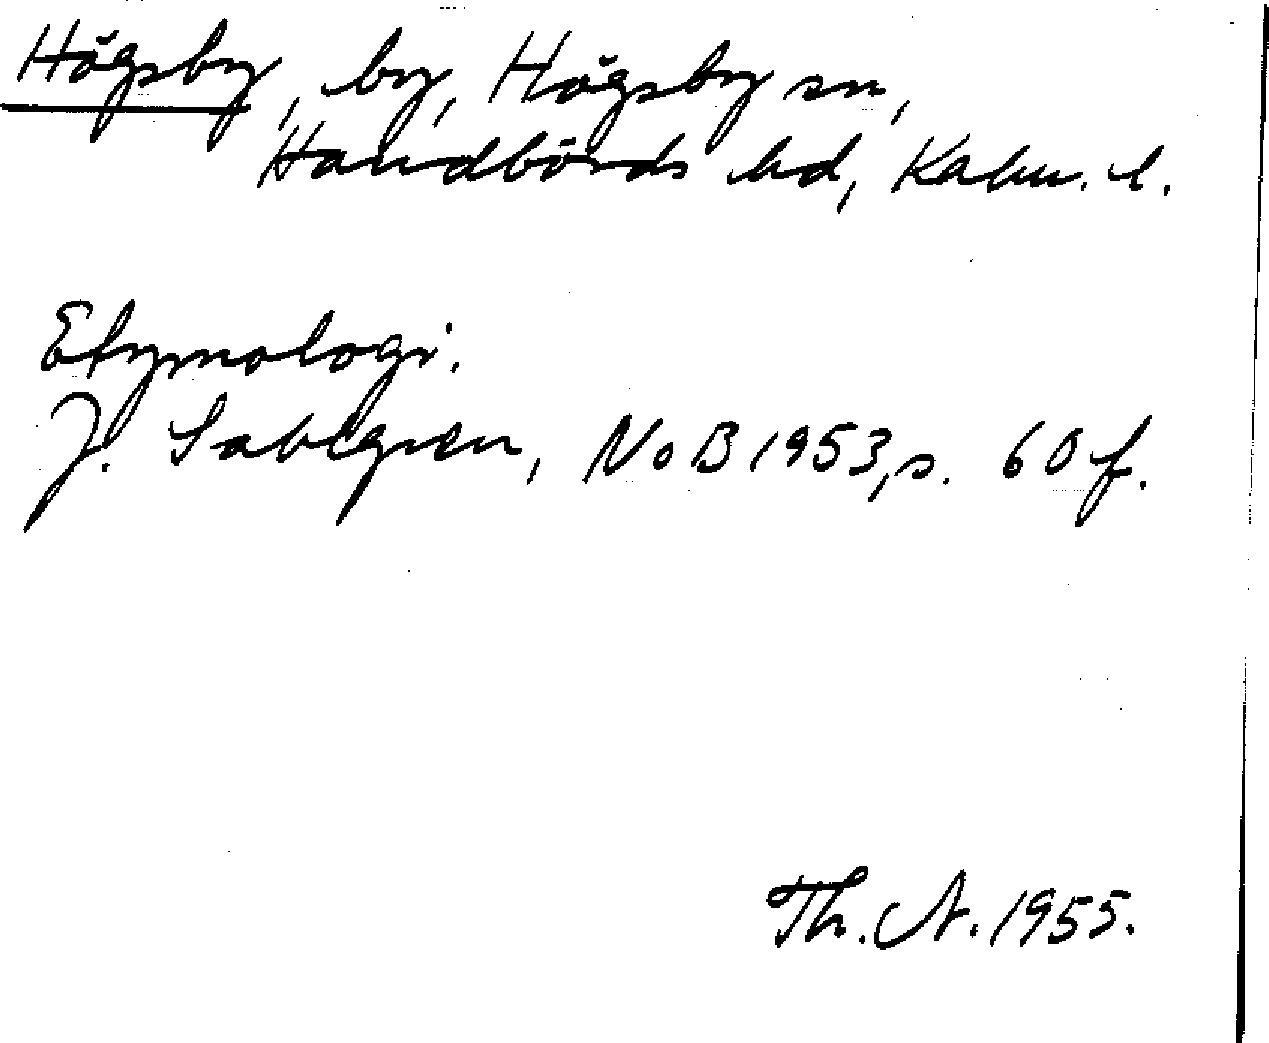 Högsby, by, Högsby sn,
Handbörds hd, Kalm. l.
Etymologi.
J. Sahlgren, NoB 1953, s. 60 f.
Th. A. 1955.